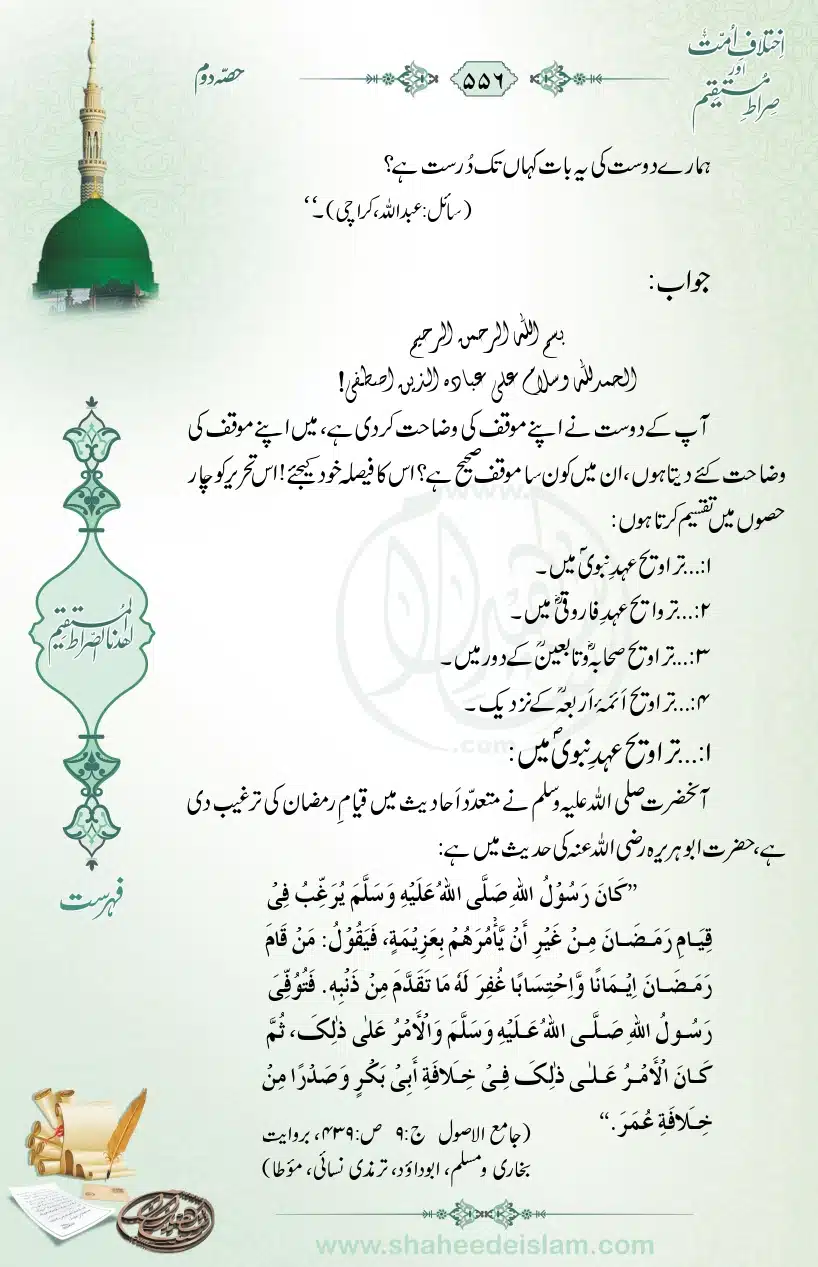 اِختلافِ اُمّت
اور
صِراطِ مُستقیم
۵۵۶
حصّہ دوم
ہمارے دوست کی یہ بات کہاں تک دُرست ہے؟
(سائل: عبداللہ، کراچی)۔‘‘
جواب:
بسم اللہ الرحمن الرحیم
الحمدللہ وسلام علیٰ عبادہ الذین اصطفیٰ!
آپ کے دوست نے اپنے موقف کی وضاحت کردی ہے، میں اپنے موقف کی
وضاحت کئے دیتا ہوں، ان میں کون سا موقف صحیح ہے؟ اس کا فیصلہ خود کیجئے! اس تحریر کو چار
حصوں میں تقسیم کرتا ہوں:
۱:...تراویح عہدِ نبویؐ میں۔
۲:...تروایح عہدِ فاروقیؓ میں۔
۳:...تراویح صحابہؓ وتابعینؒ کے دور میں۔
۴:...تراویح اَئمۂ اَربعہؒ کے نزدیک۔
۱:...تراویح عہدِ نبویؐ میں:
آنحضرت صلی اللہ علیہ وسلم نے متعدّد اَحادیث میں قیامِ رمضان کی ترغیب دی
ہے، حضرت ابو ہریرہ رضی اللہ عنہ کی حدیث میں ہے:
’’کَانَ رَسُوْلُ اللہِ صَلَّی اللہُ عَلَیْہِ وَسَلَّمَ یُرَغِّبُ فِیْ
قِیَامِ رَمَضَانَ مِنْ غَیْرِ أَنْ یَّأْمُرَھُمْ بِعَزِیْمَةٍ، فَیَقُوْلُ: مَنْ قَامَ
رَمَضَانَ اِیْمَانًا وَّاِحْتِسَابًا غُفِرَ لَهٗ مَا تَقَدَّمَ مِنْ ذَنْبِهٖ. فَتُوُفِّیَ
رَسُوْلُ اللہِ صَلَّی اللہُ عَلَیْہِ وَسَلَّمَ وَالْأَمْرُ عَلٰی ذٰلِکَ، ثُمَّ
کَانَ الْأَمْرُ عَلٰی ذٰلِکَ فِیْ خِلَافَةِ أَبِیْ بَکْرٍ وَصَدْرًا مِنْ
خِلَافَةِ عُمَرَ.‘‘
(جامع الاصول ج:۹ ص:۴۳۹، بروایت
بخاری ومسلم، ابوداؤد، ترمذی نسائی، مؤطا)
اهدنا الصّراط المُستقیم
فہرست
www.
.com
www.shaheedeislam.com